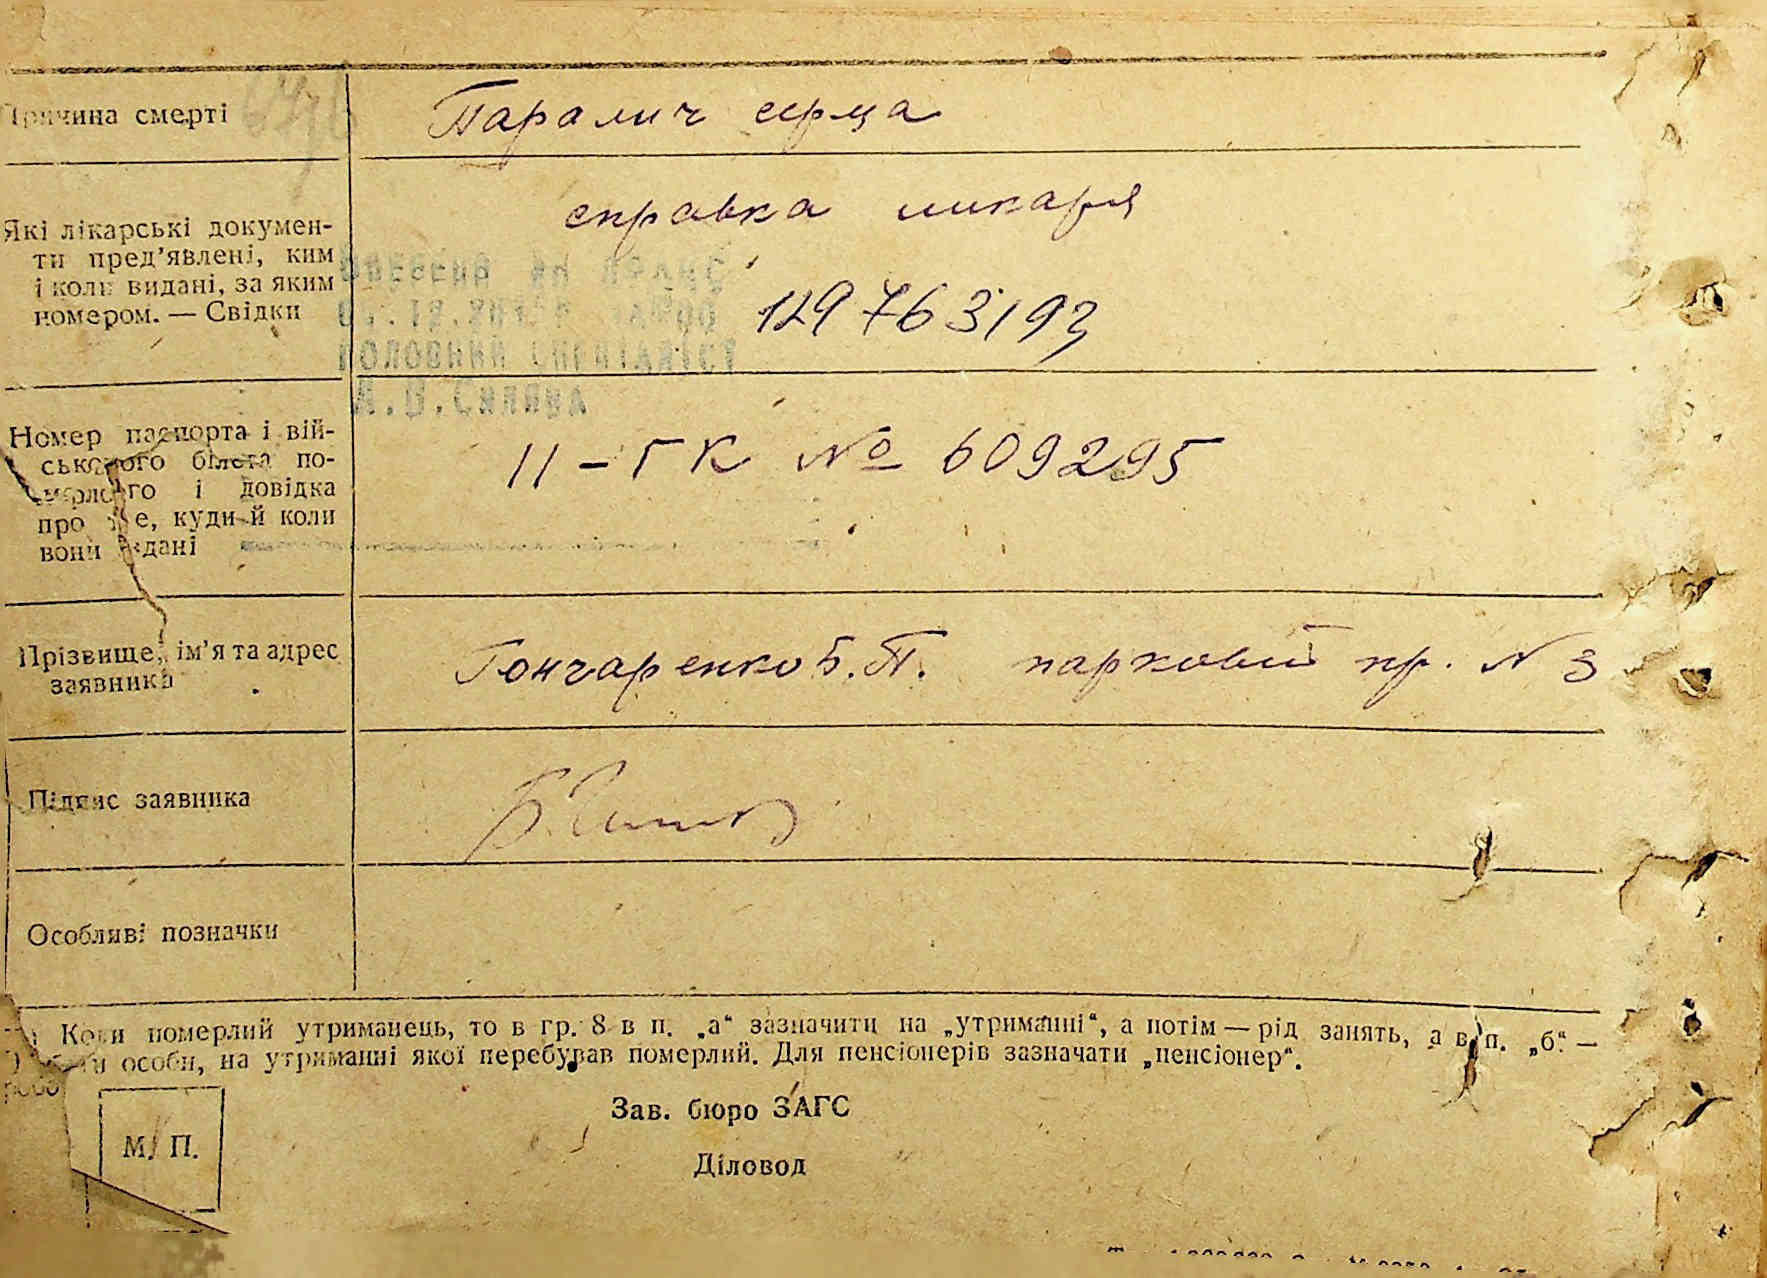 Причина смерті
Паралич серца
справка ликаря
Які лікарські докумен-
ти пред’явлені, ким
і коли видані, за яким
номером. — Свідки
129763193
головний спеціаліст
Номер паспорта і вій-
ськового білета по-
мерлого і довідка
про те, куди й коли
вони здані
II – ГК № 609295
Прізвище, ім’я та адрес
заявника
Гончаренко Б.П. парковий пр. N 3
Підпис заявника
Особливі позначки
Коли померлий утриманець, то в гр. 8 в п. „а“ зазначити на „утриманні“, а потім — рід занять, а в п. „б“ —
особи, на утриманні якої перебував померлий. Для пенсіонерів зазначати „пенсіонер“.
Зав. бюро ЗАГС
М. П.
Діловод